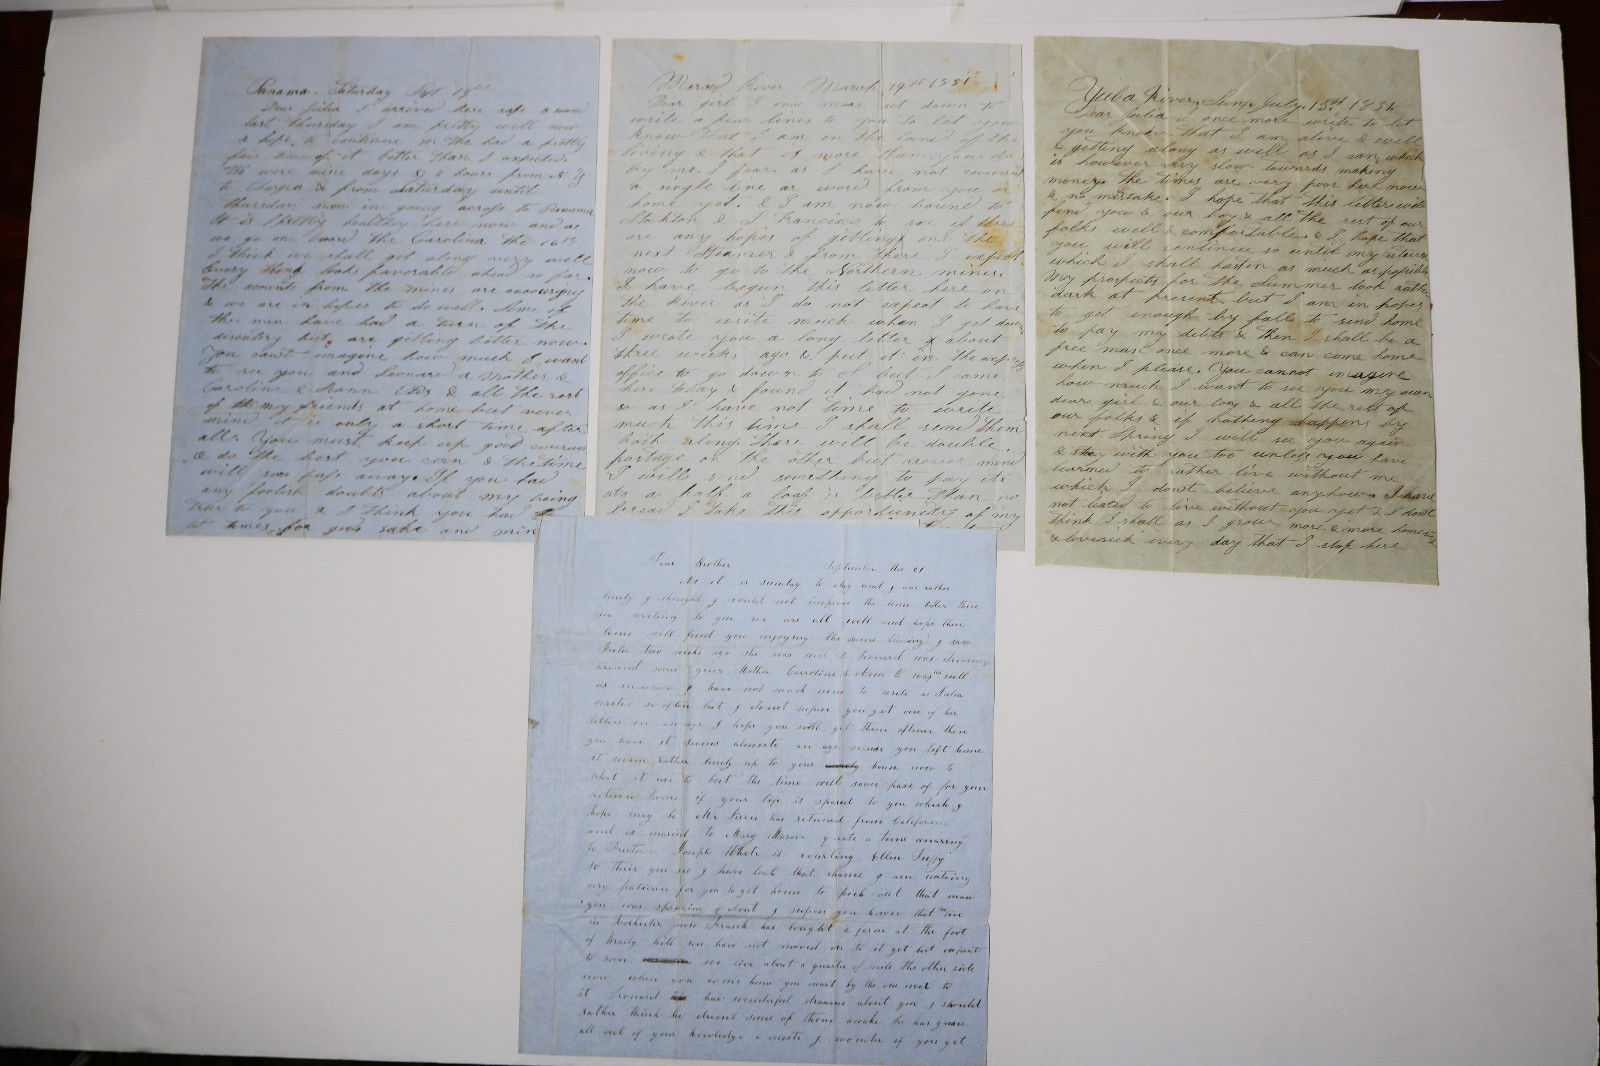 Panama. Saturday Sept
Dear Julia I arrived here safe & sound
last Thursday I am pretty well now
& hope to continue so. We had a pretty
fair time of it better than I expected.
We were nine days & 2 hours from N. Y
to Chagres & from Saturday until
Thursday noon in going across to Panama
It is pretty healthy here now and as
we go on board the Carolina the 16th
I think we shall get along very well
Every thing looks favorable ahead so far.
The accounts from the mines are encouraging
& we are in hopes to do well. Some of
the men have had a turn of the
disentary but are getting better now.
You cant imagine how much I want
to see you and Leonard & Mother &
Caroline & Ann & all the rest
of my friends at home but never
mind it is only a short time after
all. You must keep up good courage
& do the best you can & the time
will soon pass away. If you had
any foolish doubts about my being
true to you & I think you had
at times for gods sake and
Merced River March 19th 1851
Dear girl I once more set down to
write a few lines to you to let you
know that I am in the land of the
living & that is more than you do
by me I fear. as I have not received
a single line or word from you or
home yet. & I am now bound to
Stockton & S Francisco to see if there
are any hopes of getting one the
next Steamer & from there I expect
now to go to the Northern mines.
I have begun this letter here on
the River as I do not expect to have
time to write much when I get down
I wrote you a long letter about
three weeks ago & put it in the express
office to go down to S F but I came
here today & found it had not gone
so as I have not time to write
much this time I shall send them
both along. There will be double
postage on the other but never mind
I will send something to pay it.
As a half a loaf is better than no
bread I take this opportunity of my
Yuba River, July 13th
Dear Julia I once more write to let
you know that I am alive & well
& getting along as well as I can, which
is however very slow towards making
money. The times are very poor here now
& no mistake. I hope that this letter will
find you & our boy & all the rest of our
folks well & comfortable & I hope that
you will continue so until my return
which I shall hasten as much as possible
My prospects for the summer look rather
dark at present but I am in hopes
to get enough by fall to send home
to pay my debts & then I shall be a
free man once more & can come home
when I please. You cannot imagine
how much I want to see you my own
dear girl & our boy & all the rest of
our folks & if nothing happens by
next Spring I will see you again
& stay with you too unless you have
learned to rather live without me
which I dont believe anyhow. I have
not learned to live without you yet & I dont
think I shall as I grow more & more homesick
& lovesick every day that I stop here
Dear Brother September the 21
As it is sunday to day and I am rather
lonely I thought I could not improve the time better then
in writing to you we are all well and hope these
lines will find you enjoying the same blessing I saw
Julia two weeks ago she was well & Leonard was driving
around some your Mother Carroline & Ann to was well
as common I have not much news to write as Julia
writes so often but I do not supose you get one of her
letters in an age I hope you will get them oftener then
you have it seems almoste an age since you left home
it seems rather lonely up to your house now to
what it use to but the time will soon pass of for your
return home if your life is spared to you which I
hope may be Mr Pierce has returned from California
and is maried to Mary Mason quite a time
to Freetown Joseph White is courting Ellen
so their you see I have lost that chance I am waiting
very patience for you to get home to pick out that man
you was speaking about I supose you know that we live
in Rochester now Frank has bought a farm at the foot
of hill we have not moved on to it yet but expect
to soon we live about a quarter of mile the other side
now when you come home you must by the one next to
it Leonard has wonderful dreams about you I should
rather think he dreamt some of them awake he has grown
all out of your knowledge a moste I wonder if you get